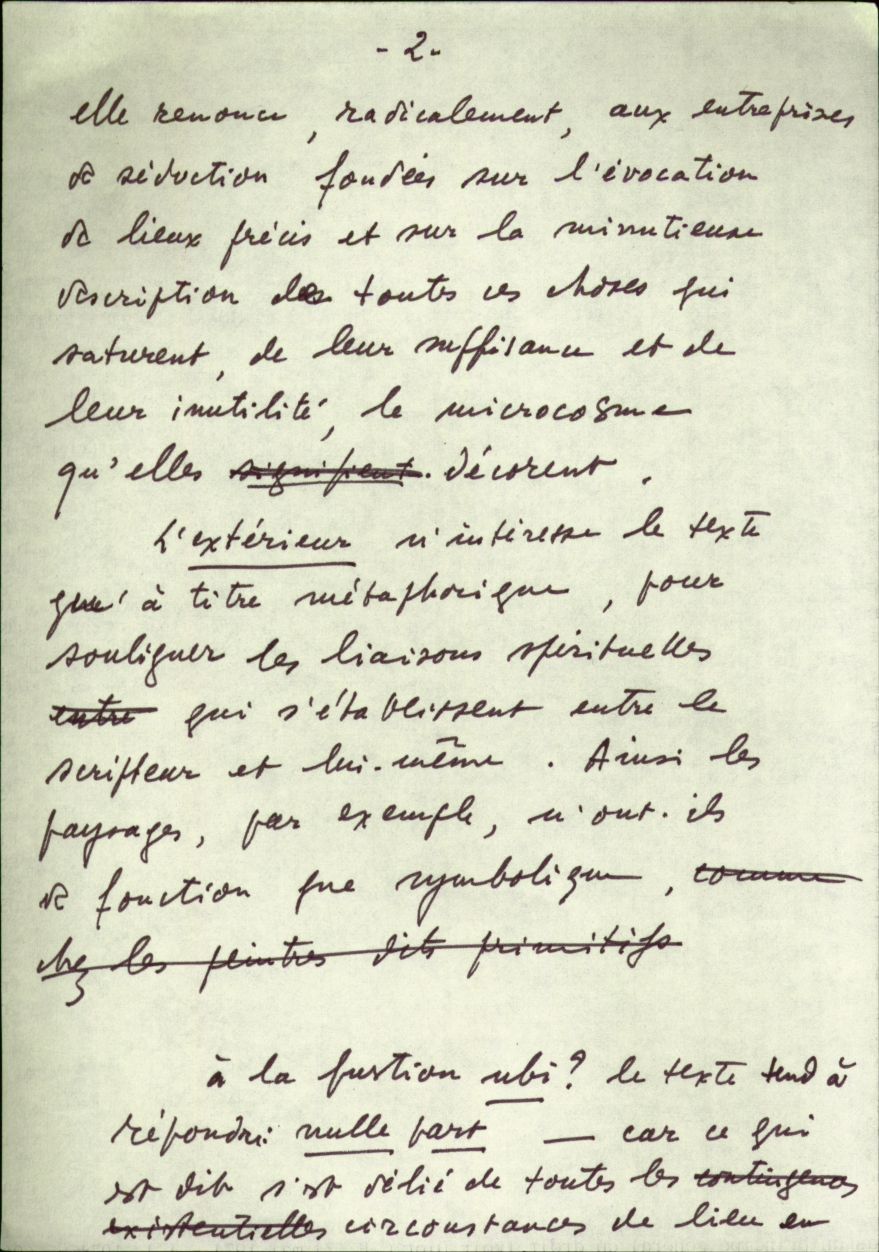 - 2 -
elle renonce, radicalement, aux entreprises
de séduction fondées sur l'évocation
de lieux précis et sur la minutieuse
description de toutes ces choses qui
saturent, de leur suffisance et de
leur inutilité, le microcosme
qu'elles signifient. décorent.
L'extérieur n'intéresse le texte
qu'à titre métaphorique, pour
souligner les liaisons spirituelles
entre qui s'établissent entre le
scripteur et lui-même. Ainsi les
paysages, par exemple, n'ont-ils
de fonction que symbolique, comme
chez les peintres dits primitifs
à la question ubi? le texte tend à
répondre: nulle part — car ce qui
est dit s'est délié de toutes les contingences
existentielles circonstances de lieu en